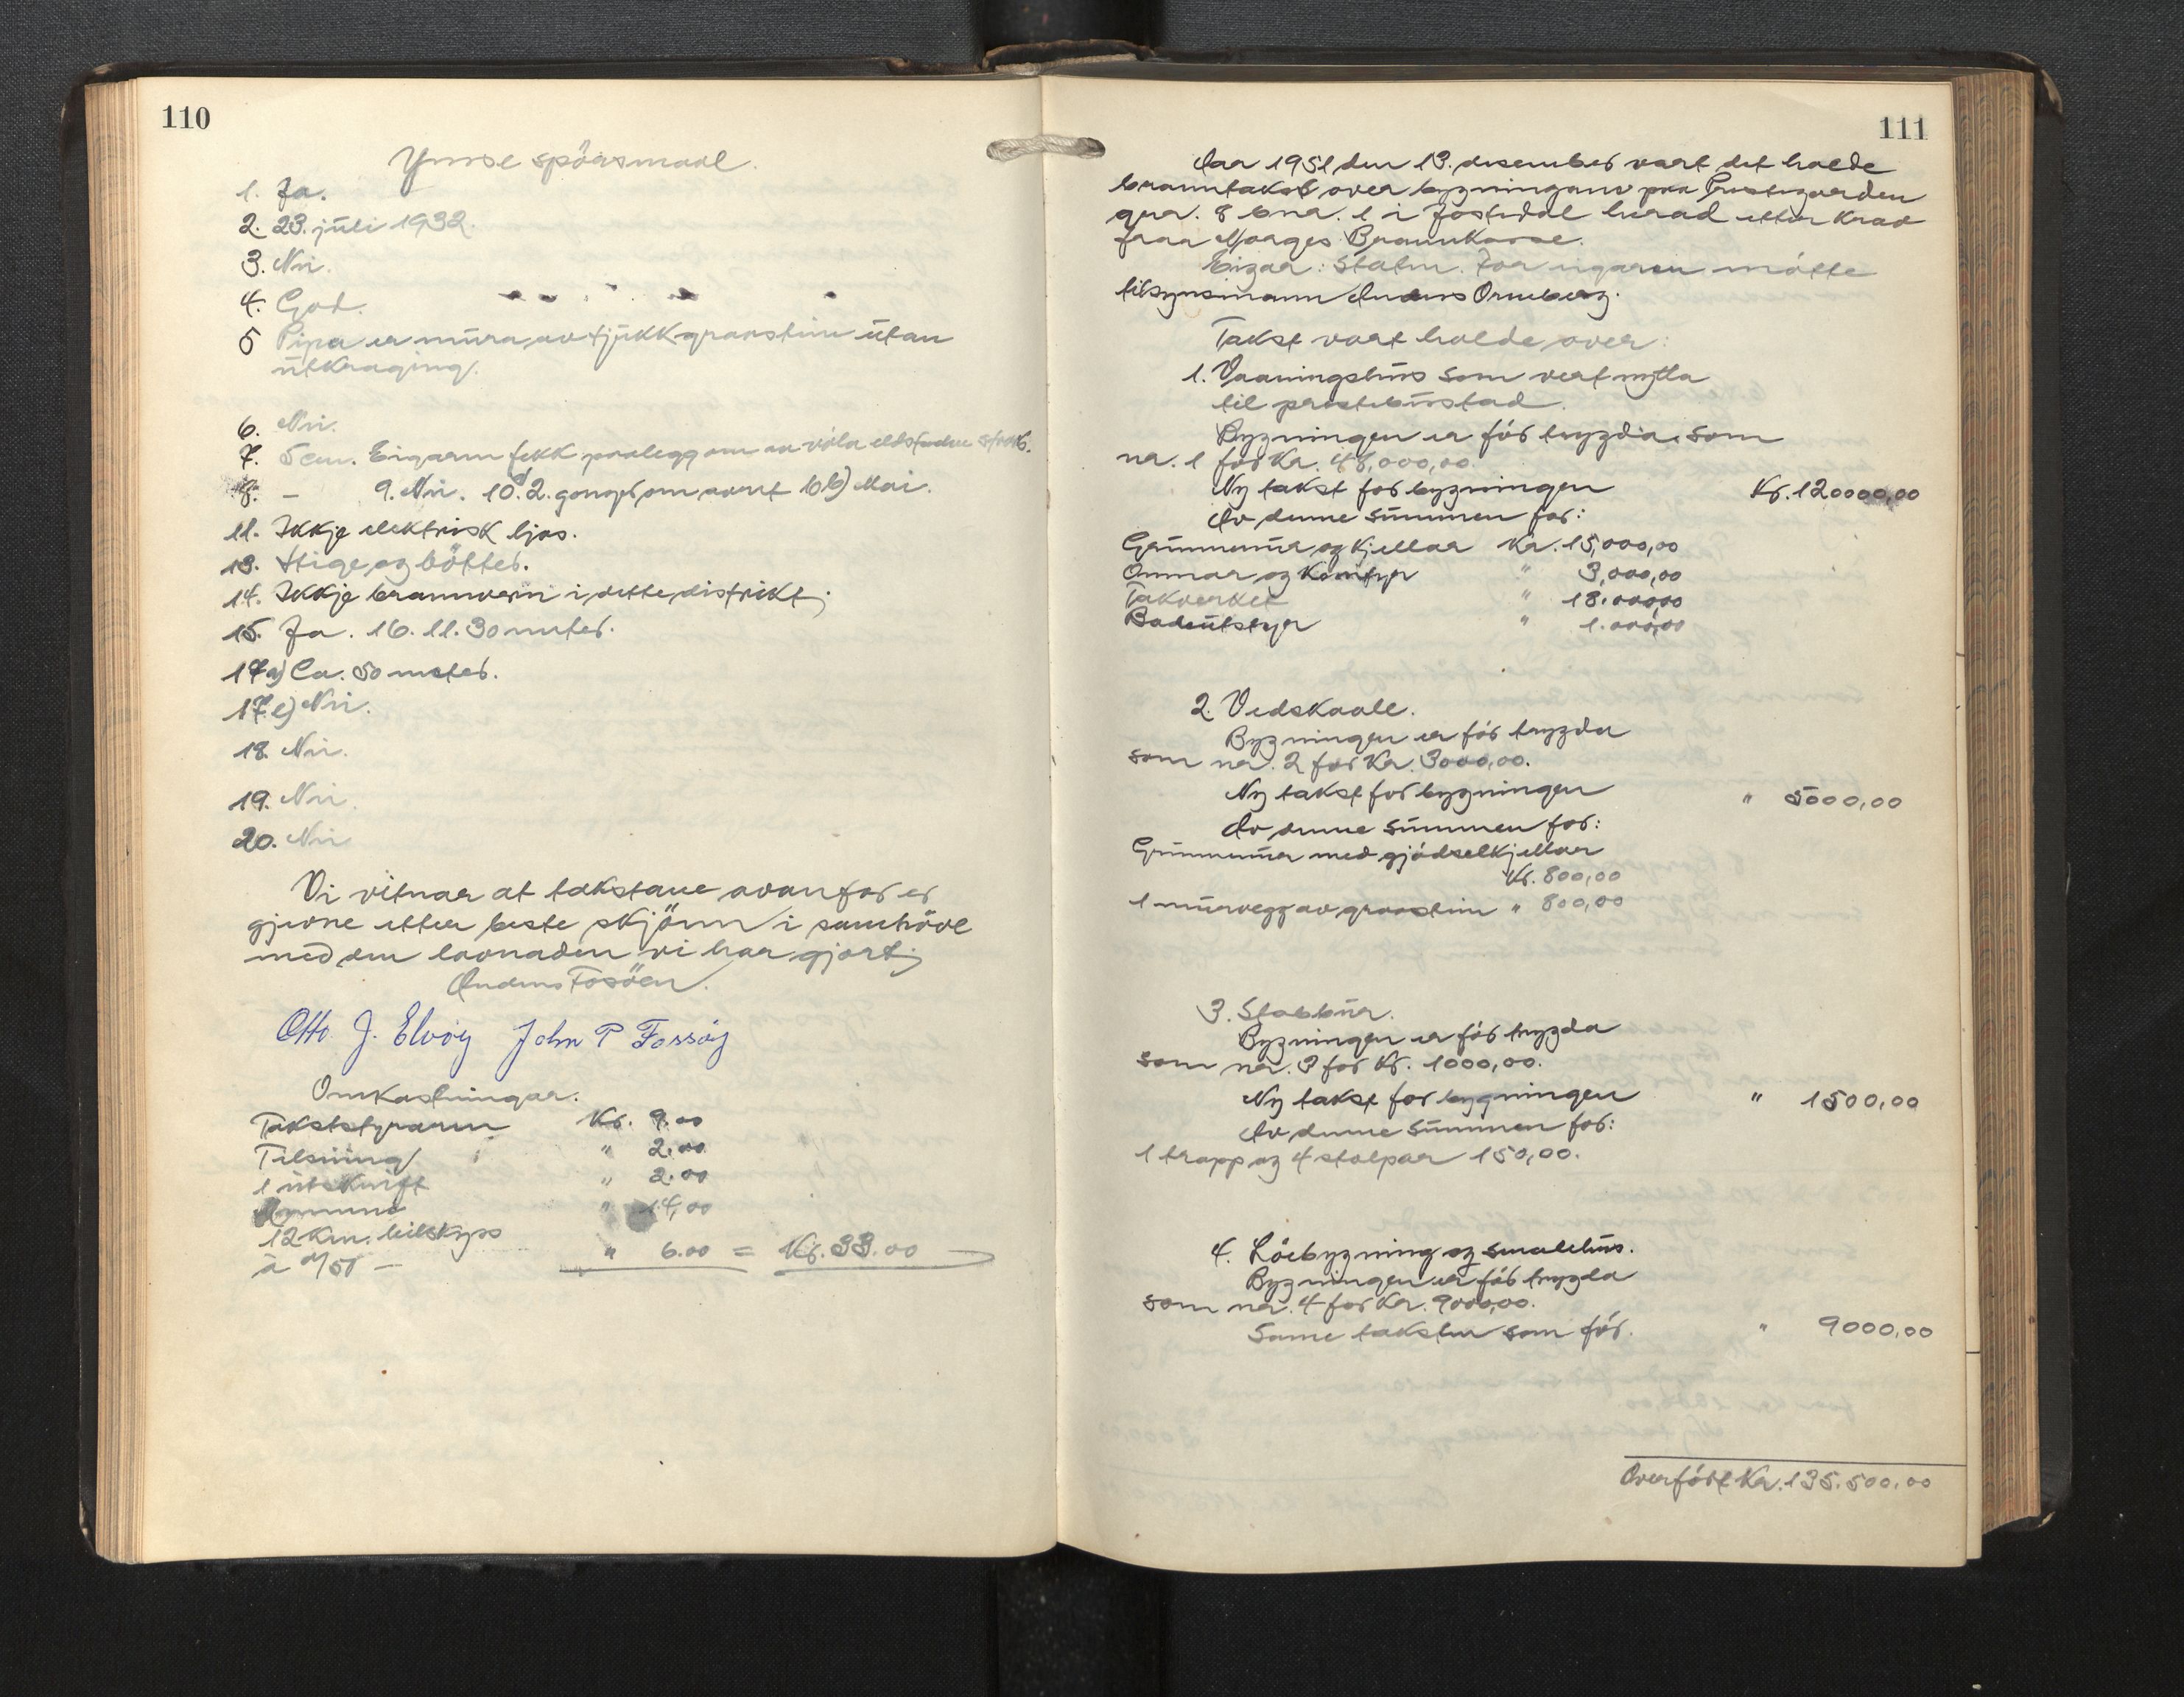 110
Ymse spörsmaal.
1. Ja.
2. 23. juli 1932.
3. Nei.
4. God.
5 Pipa er mura av tjukk graastein utan
utkraging.
6. Nei.
7. Seu. Eigaren fekk paalegg om aa völa eldstadene straks.
8. — 9. Nei. 10a) 2. gonger om aaret 10 b) Mai.
11. Ikkje elektrisk ljos.
13. Stige og bötter.
14. Ikkje brannvern i dette distrikt.
15. Ja. 16. 11. 30 meter.
17a) Ca. 50 meter.
17.e) Nei.
18. Nei.
19. Nei.
20. Nei
Vi vitnar at takstane ovanfor er
gjevne etter beste skjönn i samhöve
med den lovnaden vi har gjort.
Anders Fosöen.
Otto J. Elvöy John P Fossöy
Omkostningar.
Takststyraren Kr. 9.00
Tilsuing " 2.00
1 utskrift " 2.00
" 14,00
12 Km. bilskyss
à 0/50 — " 6.00 = Kr. 33.00
111
Aar 1951 den 13. desember vart det halde
branntakst over bygningane paa Prestegarden
gnr. 8 bnr. 1 i Jostedal herad etter krav
fraa Norges Brannkasse.
Eigar: Staten. For eigaren mötte
tilsynsmann Anders Ormberg.
Takst vart halde over:
1. Vaaningshus som vert nytta
til prestebustad.
Bygningen er för trygda som
nr. 1 for Kr. 48,000,00.
Ny takst for bygningen Kr. 120000,00
Av denne summen for:
Grunnmur og Kjellar Kr. 15,000,00
Omnar og Komfyr " 3,000,00
Takverket " 18.000,00
Badeutstyr " 1.000,00
2. Vedskaale.
Bygningen er för trygda
som nr. 2 for Kr. 3000,00.
Ny takst for bygningen " 5000,00
Av denne summen for:
Grunnmur med gjödselkjellar
Kr. 800,00
1 murvegg av graastein " 800,00
3. Stabbur.
Bygningen er för trygda
som nr. 3 for Kr. 1000,00.
Ny takst for bygningen " 1500,00
Av denne summen for:
1 trapp og 4 stolpar 150,00.
4. Löebygning og smalehus.
Bygningen er för trygda
som nr. 4 for Kr. 9000,00.
Same taksten som för. " 9000,00
Overfört Kr. 135.500.00